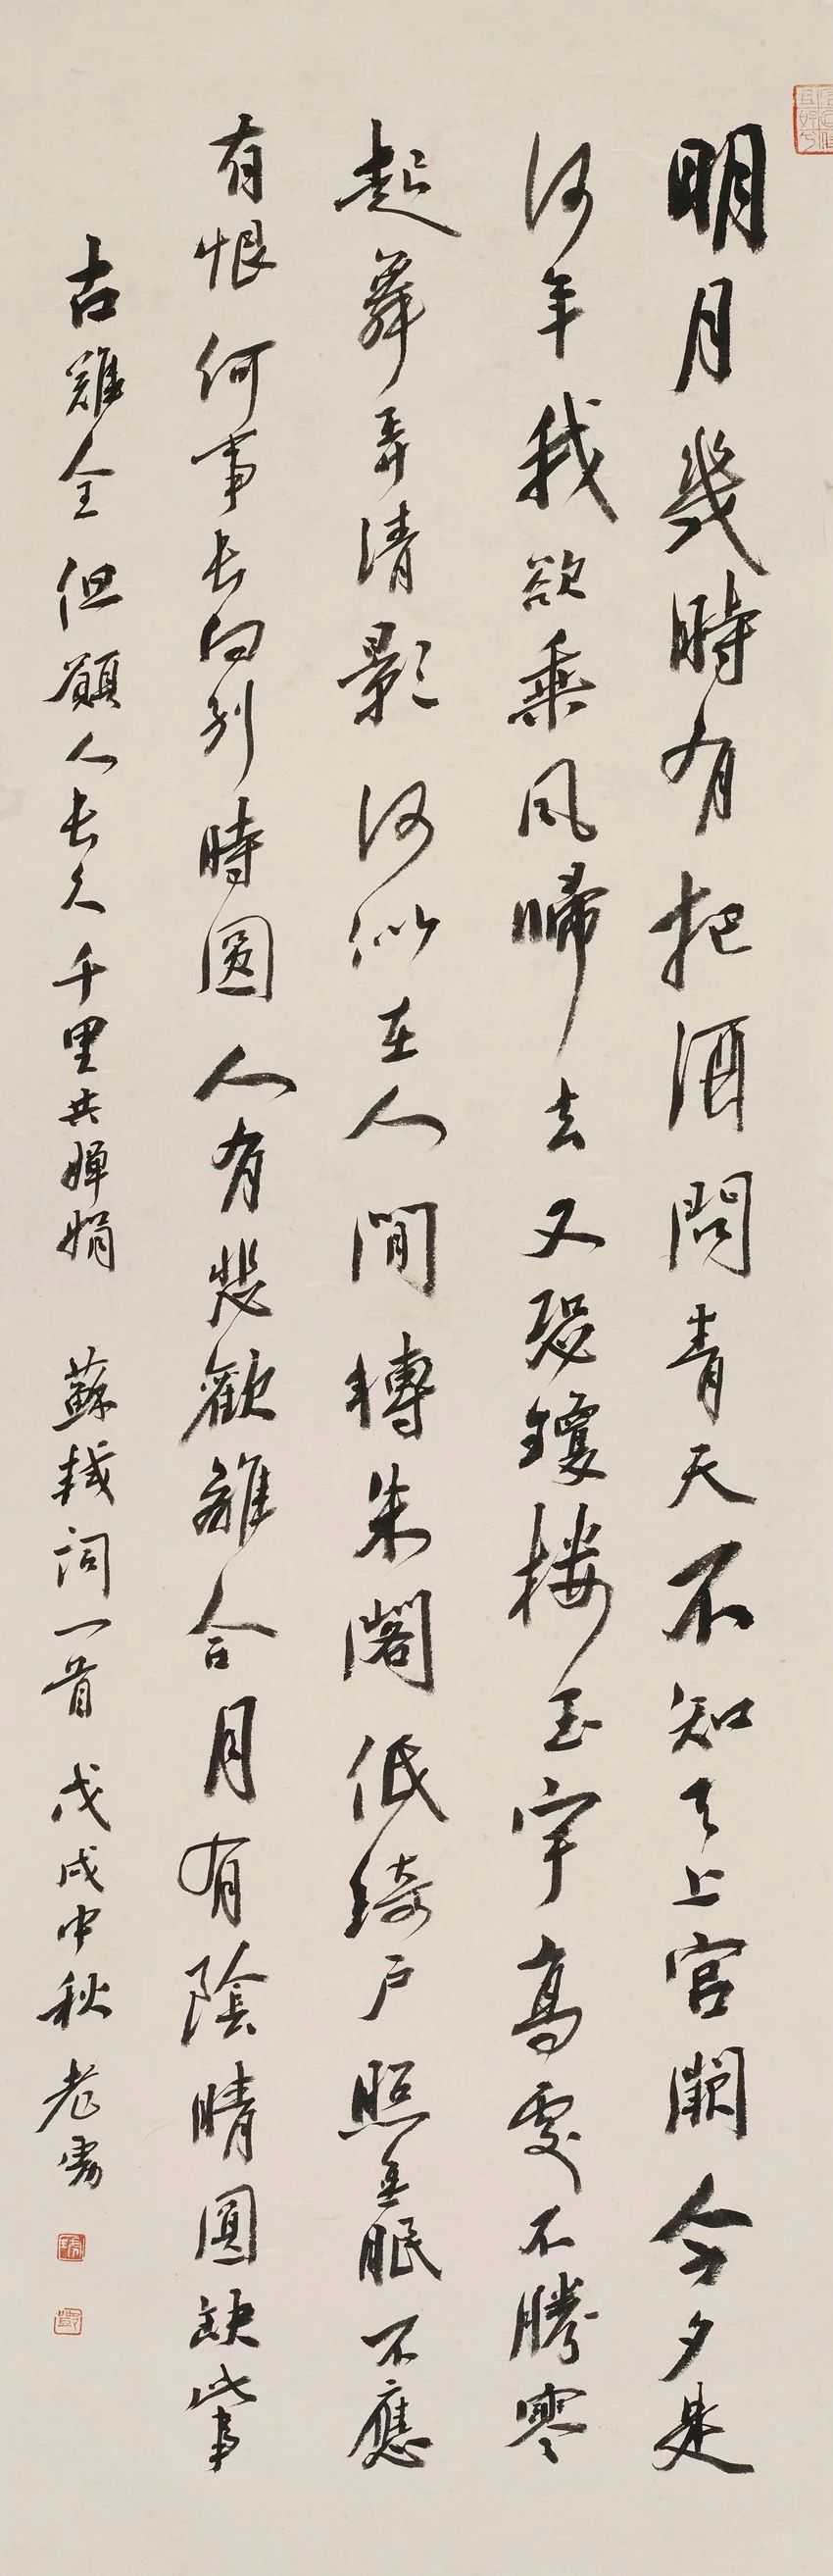 明月幾時有把酒問青天不知天上宮闕今夕是
何年我欲乘風歸去又恐瓊樓玉宇高處不勝寒
起舞弄清影何似在人間轉朱閣低綺戶照無眠不應
有恨何事長向別時圓人有悲歡離合月有陰晴圓缺此事
古難全但願人長久千里共嬋娟 蘇軾詞一首 戊戌中秋 老